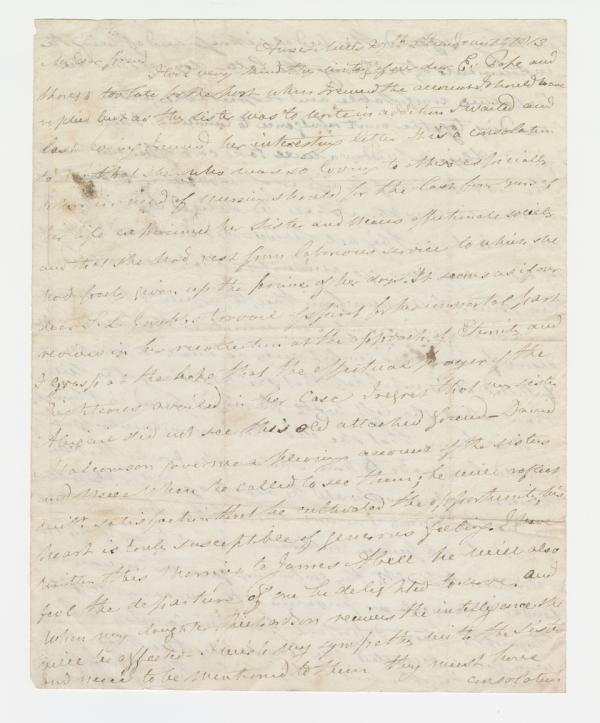 My dear friend
I took very kind the writing of our dear E. Pope and
too late for the post when I received the account I should have
replied but as the Sister was to write in addition I waited and
last evening received her interesting letter. It is a consolation
to me that she who was so loving to others especially
when in need of nursing should for the last four years of
her life experienced her Sister and Nieces affectionate society
and that she had rest from laborious service to which she
had freely given up the prime of her days. It seems as if our
dear S. L. Grubbs travail of spirit for her immortal part
revived in her recollection at the approach of Eternity and
I grasp at the hope that the effectual prayer of the
righteous availed in her case I regret that my sister
Abigail did not see this old attached friend – David
Malcomson gave me a pleasing account of the sisters
and Niece when he called to see them; he will reflect
with satisfaction that he cultivated the opportunity, his
heart is truly susceptible of generous feeling. I have
written this morning to James Abell he will also
feel the departure of one he delighted to serve. and
when my daughter receives the intelligence she
will be affected. I wish my sympathy with the Sister
and niece to be mentioned to them they must have
consolation